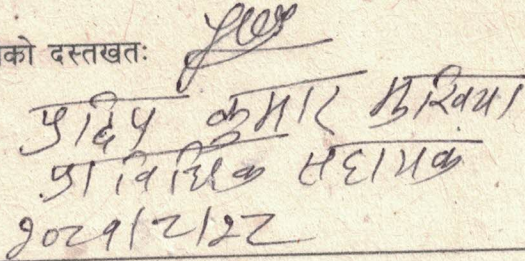 को दस्तखतः
प्रदिप कुमार मुखिया
प्राविधिक सहायक
२०८१/८/२८